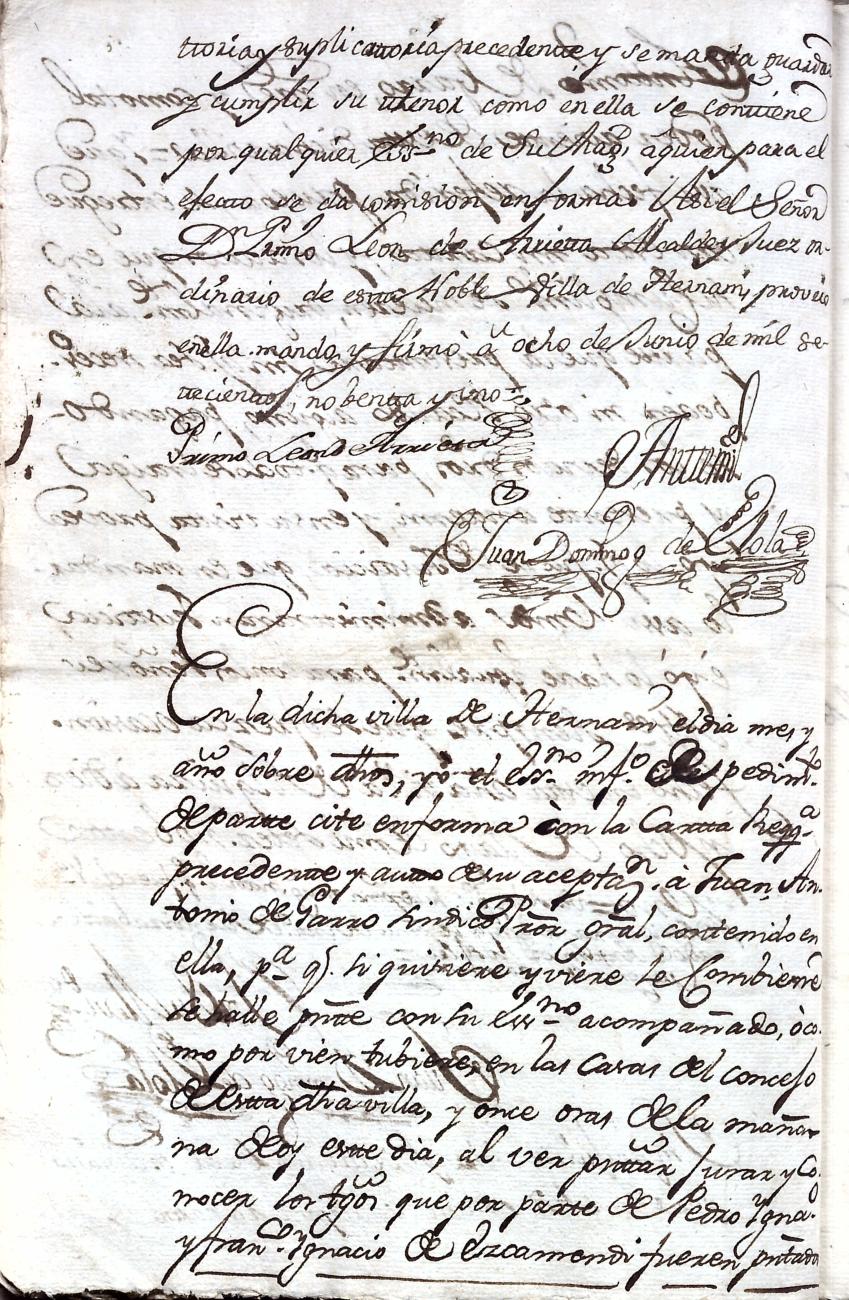 ttoria, y suplicattoria precedentte y se manda guardar
y cumplir su thenor como en ella se contiene
por qualquier Ess.no de Su Mag. aquien para el
efectto se da comision en forma: Asi el Señor
D.n Primo Leon de Arrietta Alcalde y Juez or-
dinario de estta Noble Villa de Hernani, proveio
en ella mando, y firmò à ocho de Junio de mil se-
tteciento, nobentta y uno =
Primo Leon de Arrietta
Antemi
Juan Domingo de Elola
En la dicha villa de Hernani el dia mes, y
año sobre dhos, yò el ess.no inf.o de pedim.to
de partte cite en forma còn la Cartta Reqq.a
precedentte, y autto de su acepta.n à Juan An-
tonio de Garro Sindico Pror gral, contenido en
ella, p.a q. si quisiere y viere le Combiene
se halle pntte con su Ess.no acompañado, ò co-
mo por vien tubiere, en las Casas del concejo
de estta dha villa, y once oras de la maña-
na de oy estte dia, al ver pnttar Jurar y Co-
nocer los tgos que por parte de Pedro Ygna.o
y Fran.co Ygnacio de Ezcamendi fueren pnttado